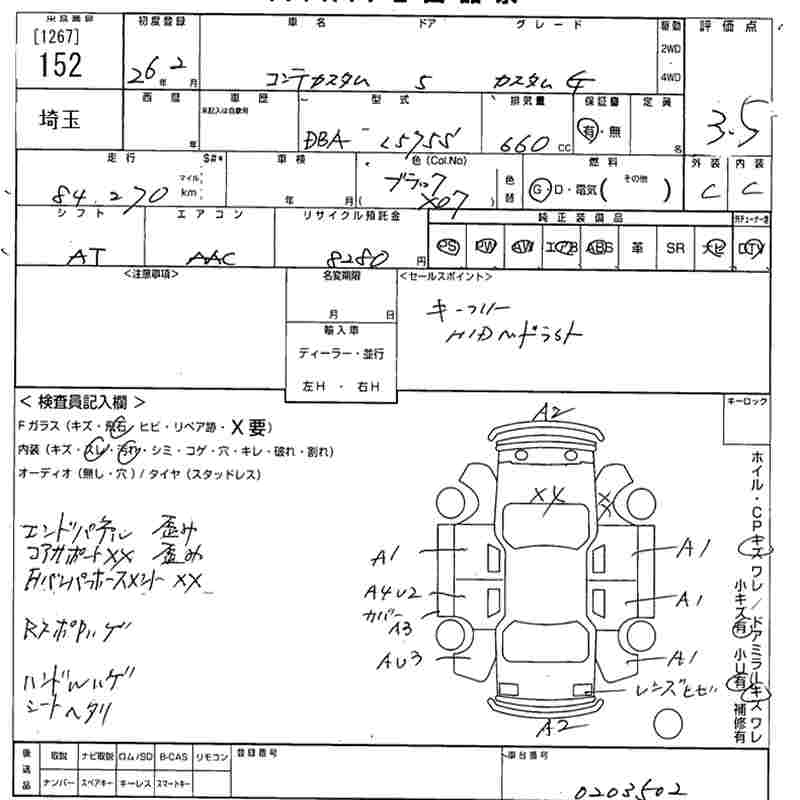 [1267]
152
初度登録
26年 2月
車名
コンテカスタム
ドア
5
グレード
カスタム G
駆動
2WD
4WD
評価点
3.5
埼玉
西暦
年
車歴
未記入は自家用
型式
DBA-L575S
排気量
660 CC
保証書
有・無
定員
名
走行
84,270
マイル
km
車検
年 月
色 (Col.No)
ブラック
( X07 )
色替
燃料
G・D・電気 (その他 )
外装
C
内装
C
シフト
AT
エアコン
AAC
リサイクル預託金
8280円
純正装備品
PS PW AW エアB ABS 革 SR ナビ DTV
<注意事項>
名変期限
月 日
輸入車
ディーラー・並行
左H ・ 右H
<セールスポイント>
キーフリー
HID
キーロック
<検査員記入欄>
Fガラス (キズ・飛石・ヒビ・リペア跡・X要)
内装 (キズ・スレ・汚れ・シミ・コゲ・穴・キレ・破れ・割れ)
オーディオ (無し・穴) / タイヤ (スタッドレス)
エンドパネル 歪み
コアサポート XX 歪み
XX
ハンドルハゲ
シートヘタリ
A2
XX
X
X
A1
A1
A4U2
カバー
A3
A1
AU3
A1
レンズヒビ
A2
ホイル・CPキズワレ/ドアミラーキズワレ
小キズ有 小U有 補修有
後送品
取説 ナビ取説 ロム/SD B-CAS リモコン
ナンバー スペアキー キーレス スマートキー
登録番号
車台番号
0203502